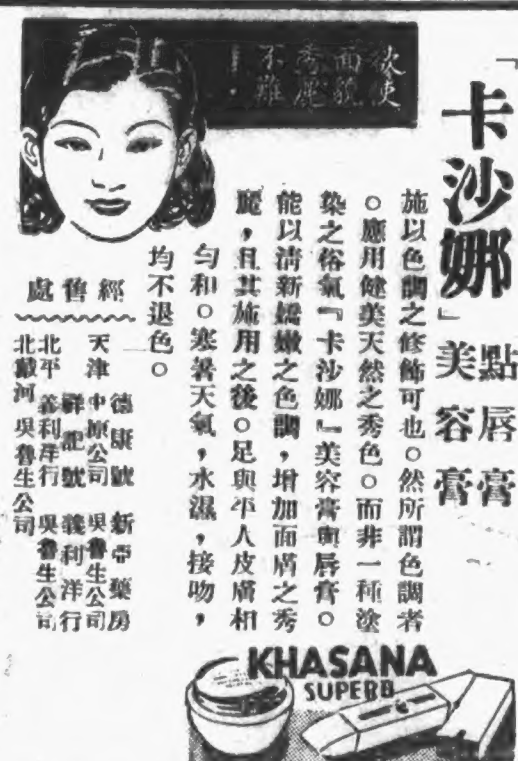 「卡沙娜」
點唇膏
美容膏
欲使
面貌
秀麗
不難
施以色調之修飾可也。然所謂色調者
。應用健美天然之秀色。而非一種塗
染之俗氣『卡沙娜』美容膏與唇膏。
能以清新嬌嫩之色調，增加面膚之秀
麗，且其施用之後。足與平人皮膚相
勻和。寒暑天氣，水濕，接吻，
均不退色。
經售處
德康號 新亞藥房
天津 中原公司 吳魯生公司
祥記號 義利洋行
北平 義利洋行 吳魯生公司
北戴河 吳魯生公司
KHASANA
SUPERB